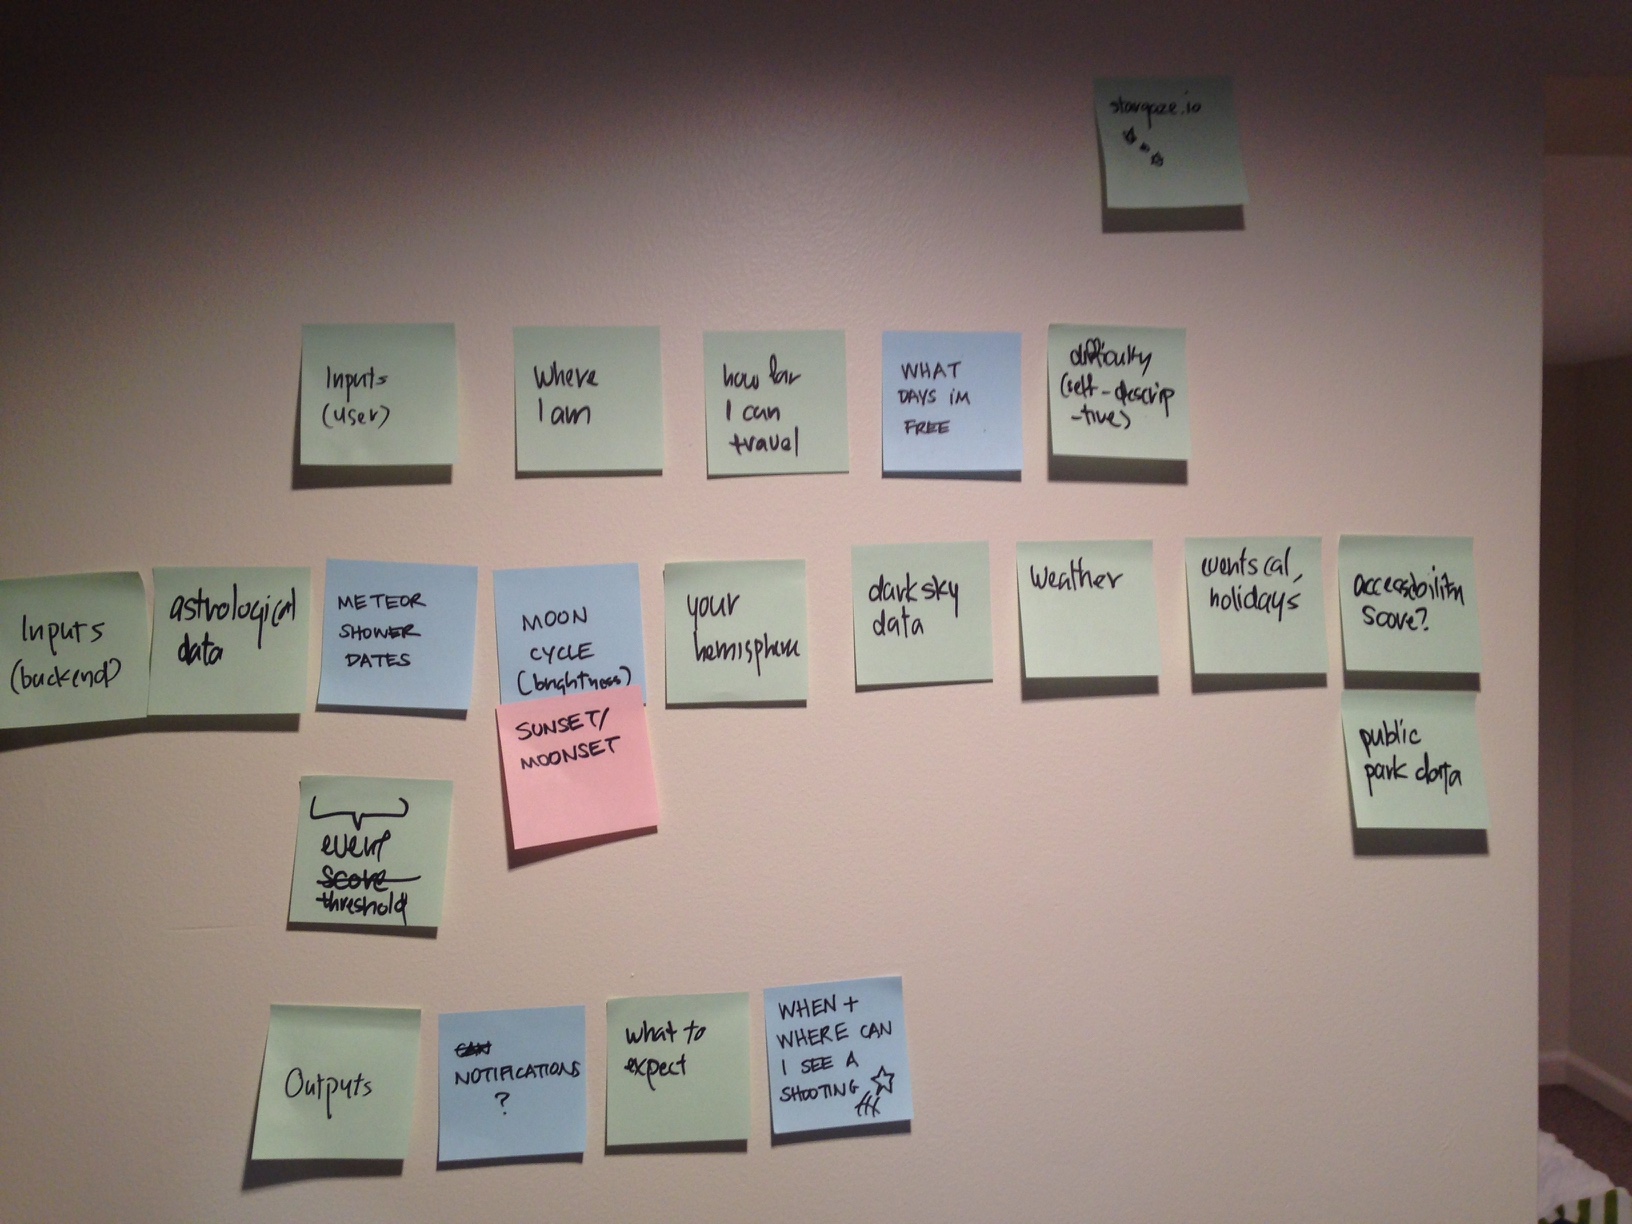 stargaze.io
Inputs
(user)
where
I am
how far
I can
travel
WHAT
DAYS IM
FREE
difficulty
(self-descrip
-tive)
Inputs
(backend)
astrological
data
METEOR
SHOWER
DATES
MOON
CYCLE
(brightness)
SUNSET/
MOONSET
your
hemisphere
dark sky
data
weather
events cal,
holidays
accessibility
score?
public
park data
event
score
threshold
Outputs
CAN
NOTIFICATIONS
?
what to
expect
WHEN +
WHERE CAN
I SEE A
SHOOTING